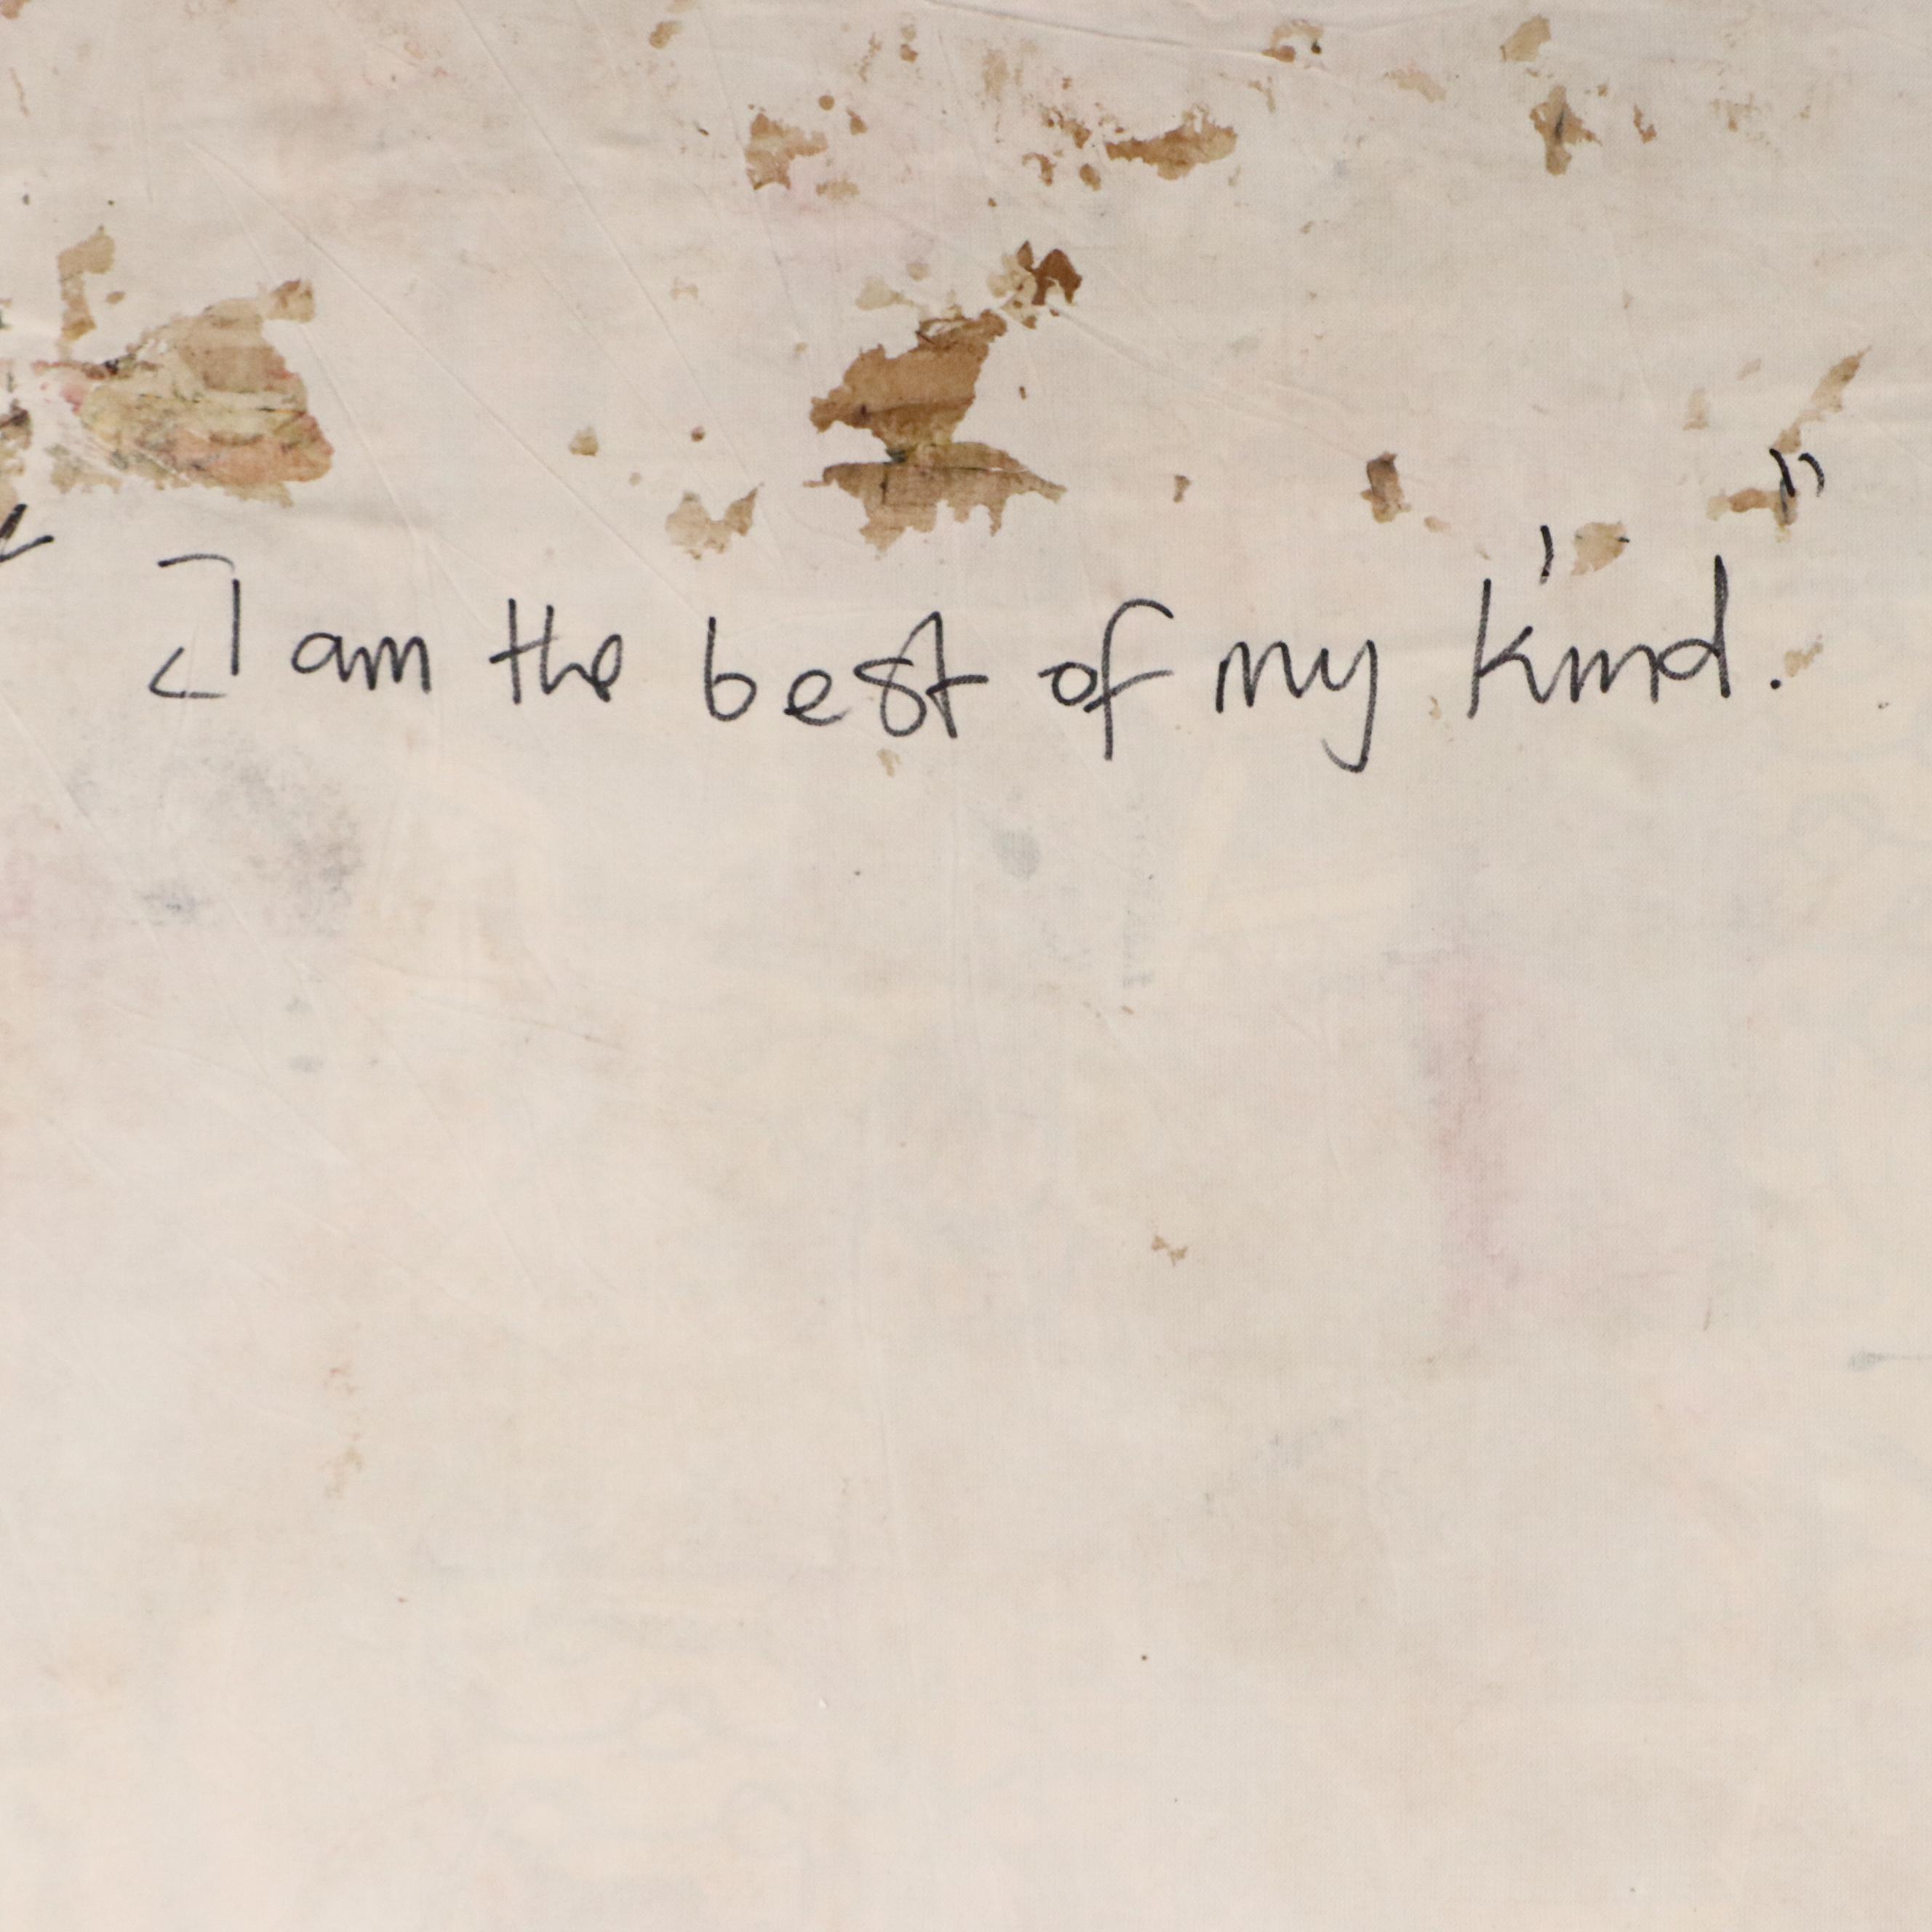 "I am the best of my kind."